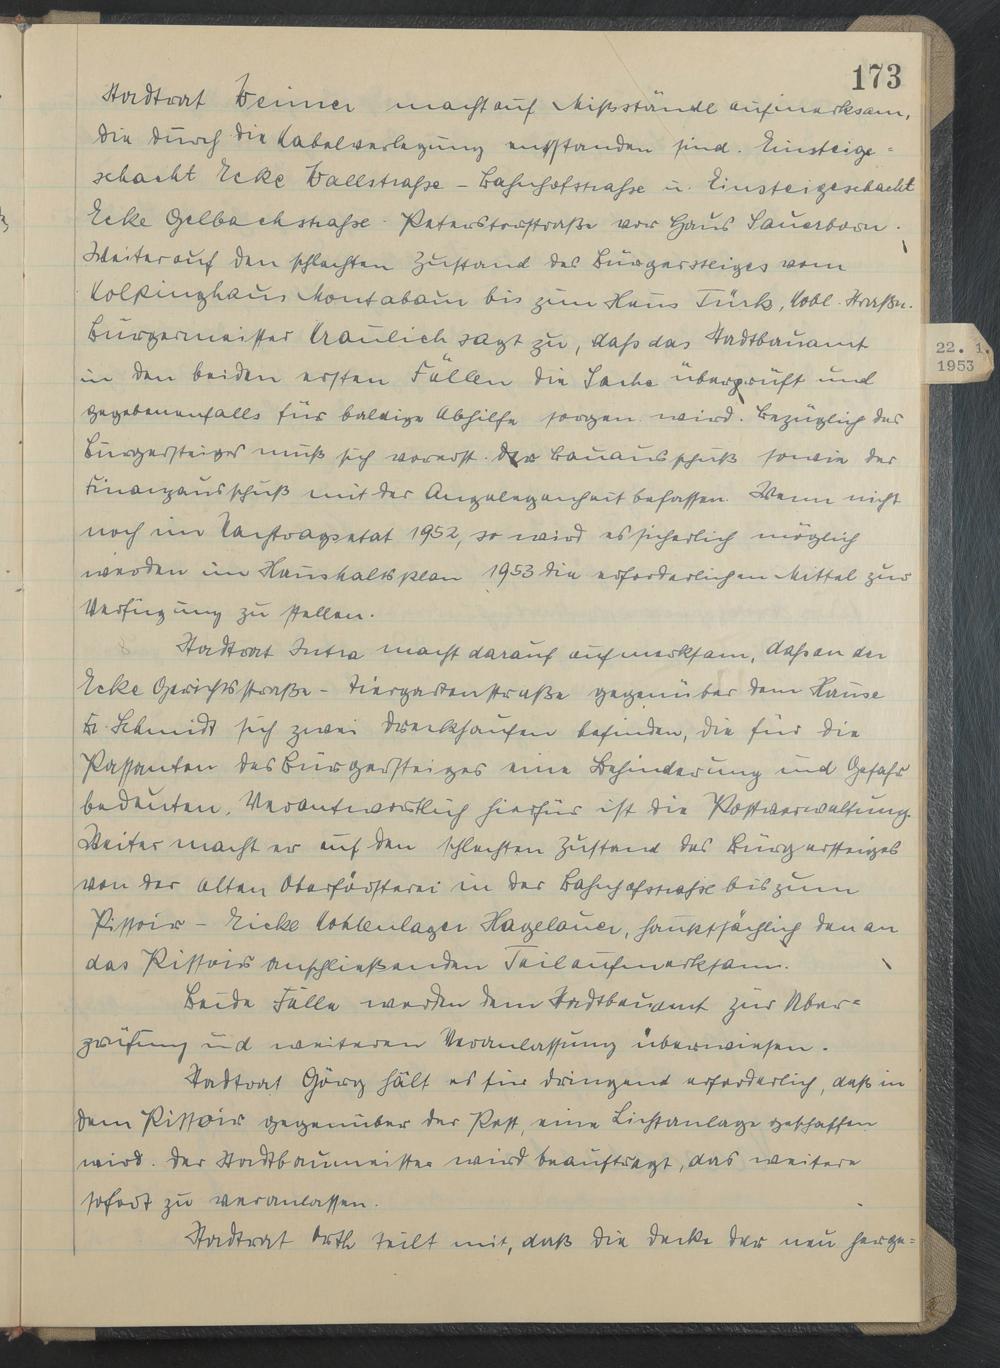 173
Stadtrat Weimer macht auf Mißstände aufmerksam,
die durch die Kabelverlegung entstanden sind. Einsteige-
schacht Ecke Wallstrahse - Bahnhofstrahse u. Einsteigeschacht
Ecke Gelbachstrahse - Peterstorstraße vor Haus Sauerborn.
Weiter auf den schlechten Zustand des Bürgersteiges vom
Kolpinghaus Montabaur bis zum Haus Türk, Kobl. Straße.
Bürgermeister Kraulich sagt zu, dahs das Stadtbauamt
in den beiden ersten Fällen die Sache überprüft und
gegebenenfalls für baldige Abhilfe sorgen wird. Bezüglich des
Bürgersteiges muß sich vorerst der Bauausschuß sowie der
Finanzausschuß mit der Angelegenheit befassen. Wenn nicht
noch im Nachtragsetat 1952, so wird es sicherlich möglich
werden im Haushaltsplan 1953 die erforderlichen Mittel zur
Verfügung zu stellen.
22. 1.
1953
Stadtrat Intra macht darauf aufmerksam, dahs an der
Ecke Gerichtsstraße - Tiergartenstraße gegenüber dem Hause
Fr. Schmidt sich zwei Dreckhaufen befinden, die für die
Passanten des Bürgersteiges eine Behinderung und Gefahr
bedeuten. Verantwortlich hierfür ist die Postverwaltung.
Weiter macht er auf den schlechten Zustand des Bürgersteiges
von der alten Oberförsterei in der Bahnhofstrahse bis zum
Pissoir - Ecke Kohlenlager Hagelauer, hauptsächlich den an
das Pissoir anschließenden Teil aufmerksam.
Beide Fälle werden dem Stadtbauamt zur Über-
prüfung und weiteren Veranlassung überwiesen.
Stadtrat Görg hält es für dringend erforderlich, daß in
dem Pissoir gegenüber der Post, eine Lichtanlage geschaffen
wird. Der Stadtbaumeister wird beauftragt, das weitere
sofort zu veranlassen.
Stadtrat Orth teilt mit, daß die Decke der neu herge-